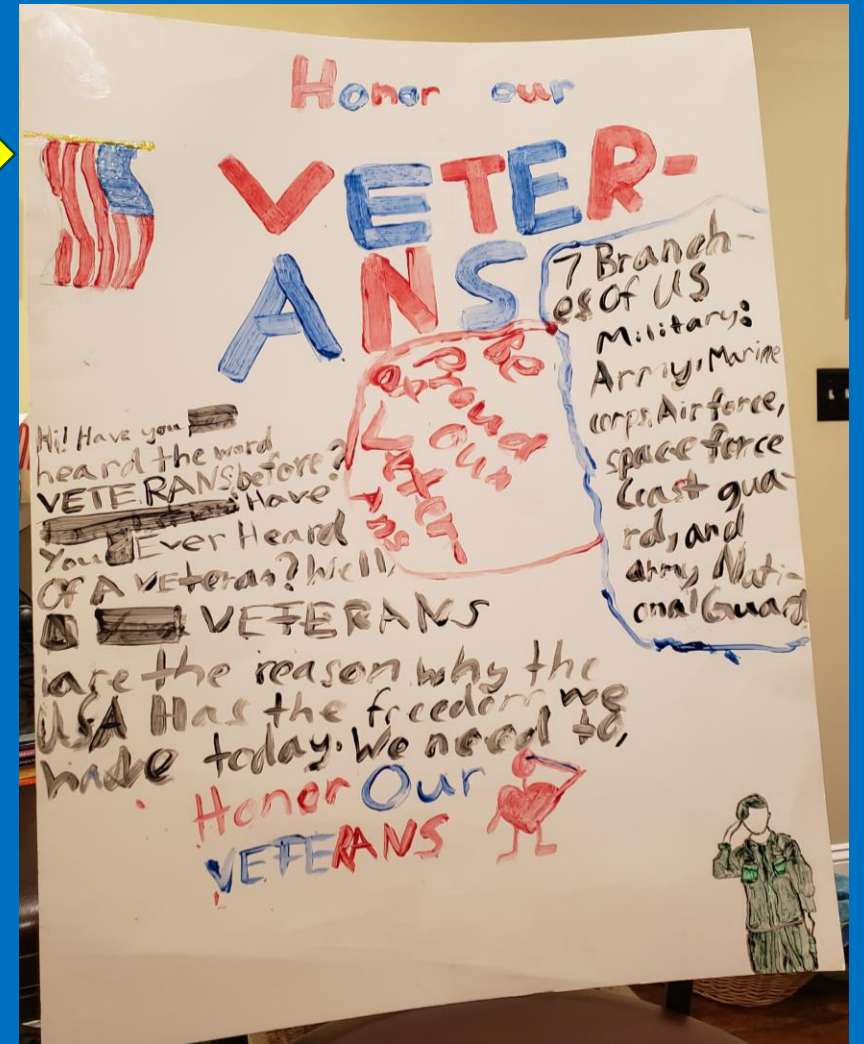 Honor our
VETER-
ANS
7 Branch-
es of US
Military:
Army, Marine
corps, Airforce,
space force
Coast gua-
rd, and
army Nati-
onal Guard
Be
Proud
Of Our
Veter
ans
Hi! Have you
heard the word
VETERANS before?
Have
You Ever Heard
Of A veteran? Well,
VETERANS
are the reason why the
USA Has the freedom we
have today. We need to,
Honor Our
VETERANS